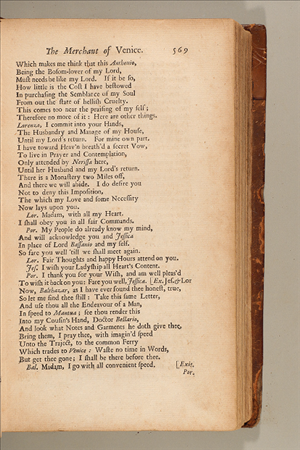 The Merchant of Venice. 569
Which makes me think that this Anthonio,
Being the Bosom-lover of my Lord,
Must needs be like my Lord. If it be so,
How little is the Cost I have bestowed
In purchasing the Semblance of my Soul
From out the state of hellish Cruelty.
This comes too near the praising of my self;
Therefore no more of it: Here are other things.
Lorenzo, I commit into your Hands,
The Husbandry and Manage of my House,
Until my Lord's return. For mine own part,
I have toward Heav'n breath'd a secret Vow,
To live in Prayer and Contemplation,
Only attended by Nerissa here,
Until her Husband and my Lord's return.
There is a Monastery two Miles off,
And there we will abide. I do desire you
Not to deny this Imposition,
The which my Love and some Necessity
Now lays upon you.
Lor. Madam, with all my Heart.
I shall obey you in all fair Commands.
Por. My People do already know my mind,
And will acknowledge you and Jessica
In place of Lord Bassanio and my self.
So fare you well 'till we shall meet again.
Lor. Fair Thoughts and happy Hours attend on you.
Jes. I wish your Ladyship all Heart's Content.
Por. I thank you for your Wish, and am well pleas'd
To wish it back on you: Fare you well, Jessica. [Ex. Jes. & Lor
Now, Balthazar, as I have ever found thee honest, true,
So let me find thee still: Take this same Letter,
And use thou all the Endeavour of a Man,
In speed to Mantua; see thou render this
Into my Cousin's Hand, Doctor Bellario,
And look what Notes and Garments he doth give thee,
Bring them, I pray thee, with imagin'd speed
Unto the Traject, to the common Ferry
Which trades to Venice: Waste no time in Words,
But get thee gone; I shall be there before thee.
Bal. Madam, I go with all convenient speed. [Exit.
Por.